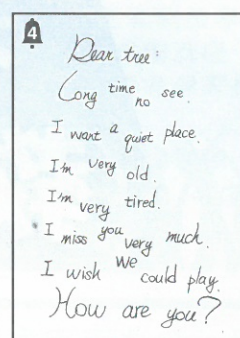 4
Dear tree:
Long time no see.
I want a quiet place.
I'm very old.
I'm very tired.
I miss you very much.
I wish we could play.
How are you?